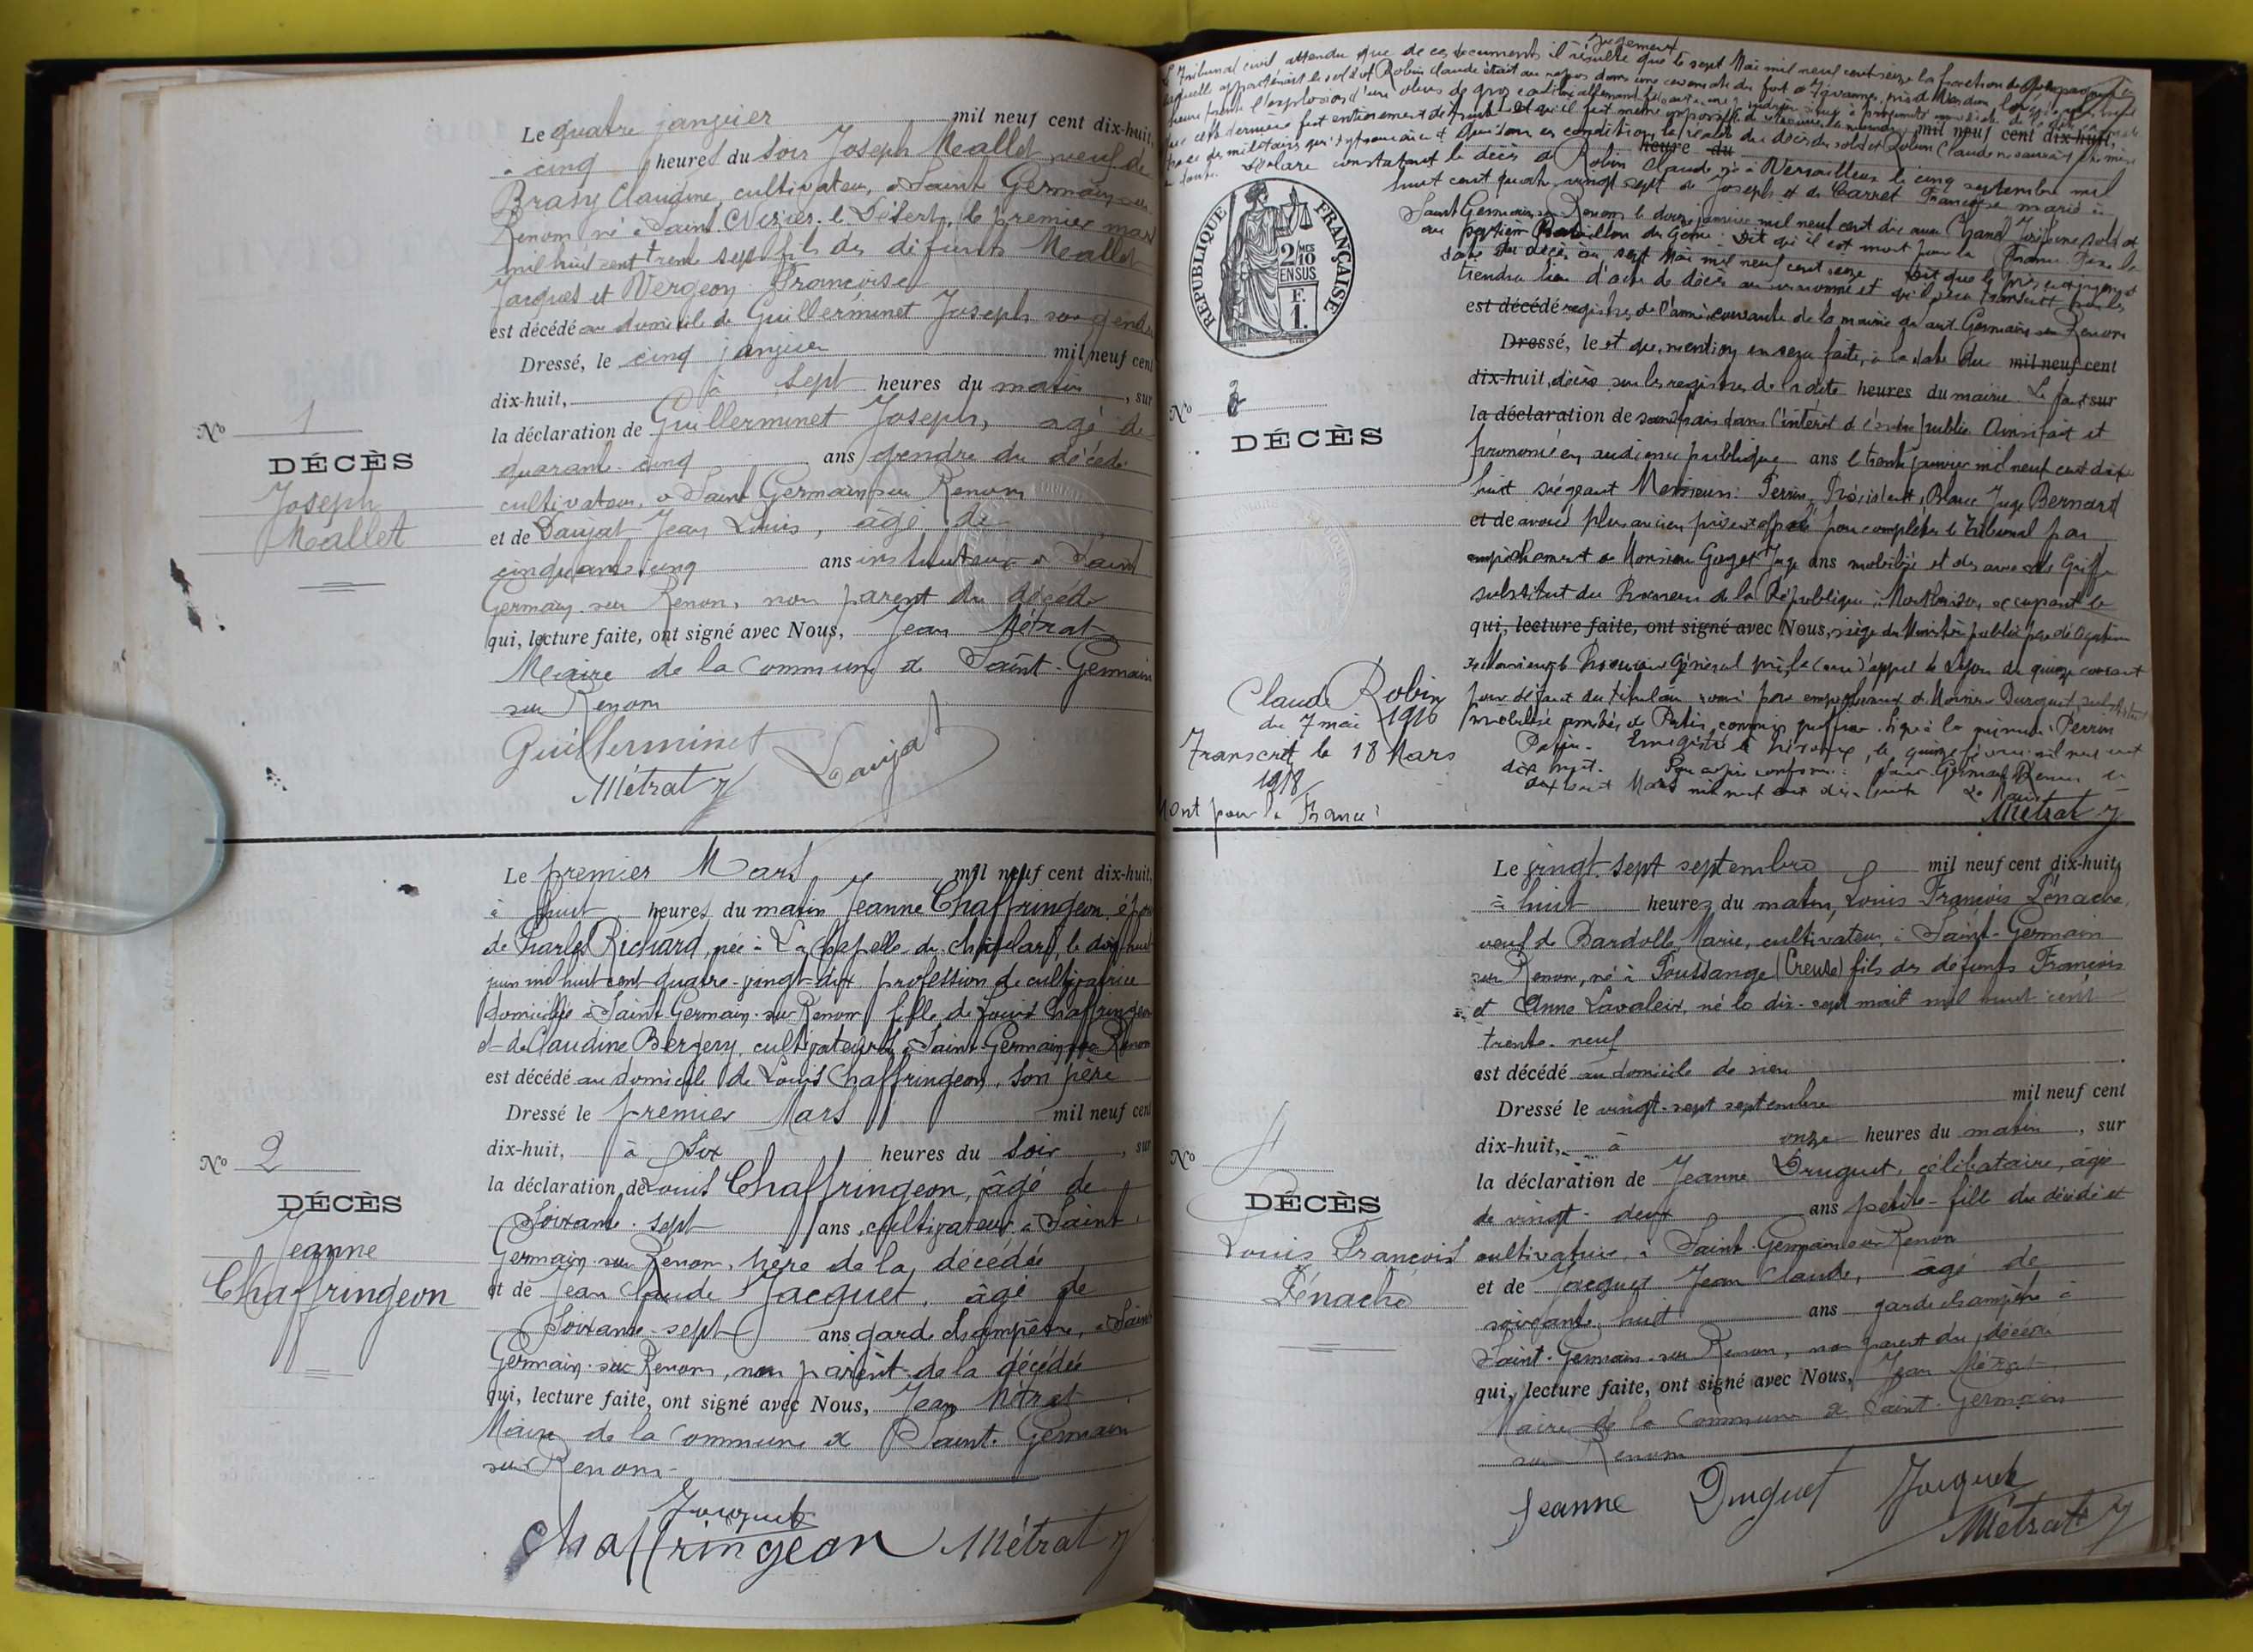 Le quatre janvier mil neuf cent dix-huit,
à cinq heures du soir Joseph Mallet veuf de
Braty Claudine, cultivateur, à Saint Germain sur
Renom né à Saint Nizier le Désert, le premier mars
mil huit cent trente sept fils des défunts Mallet
Jacques et Vergeon Françoise
est décédé au domicile de Guillerminet Joseph son gendre
Dressé, le cinq janvier mil neuf cent
dix-huit, à sept heures du matin, sur
la déclaration de Guillerminet Joseph, agé de
quarante-cinq ans gendre du décédé
cultivateur, à Saint Germain sur Renom
et de Daujat Jean Louis, âgé de
cinquante cinq ans instituteur à Saint
Germain sur Renon, non parent du décédé
qui, lecture faite, ont signé avec Nous, Jean Métrat
Maire de la Commune de Saint-Germain
sur Renom
Guillerminet Daujat
Métrat
No 1
DÉCÈS
Joseph
Mallet
Le premier Mars mil neuf cent dix-huit,
à huit heures du matin Jeanne Chaffringeon, épouse
de Charles Richard, née à La Chapelle du Châtelard, le dix-huit
juin mil huit cent quatre-vingt-dix profession de cultivatrice
domiciliée à Saint Germain-sur Renom fille de Louis Chaffringeon
et de Claudine Bergery, cultivateurs à Saint-Germain sur Renom
est décédé au domicile de Louis Chaffringeon, son père
Dressé le premier Mars mil neuf cent
dix-huit, à Six heures du soir, sur
la déclaration de Louis Chaffringeon, âgé de
Soixante-sept ans, cultivateur à Saint
Germain-sur Renom, père de la décédée
et de Jean Claude Jacquet, âgé de
Soixante-sept ans garde champêtre, à Saint
Germain-sur Renom, non parent de la décédée
qui, lecture faite, ont signé avec Nous, Jean Métrat
Maire de la Commune de Saint-Germain
sur Renom
Jacquet
Chaffringeon Métrat
No 2
DÉCÈS
Jeanne
Chaffringeon
Jugement
Tribunal civil attendu que de ces documents il résulte que le sept Mai mil neuf cent seize la fraction de
laquelle appartenait le soldat Robin Claude était au repos dans une casemate du fort
heure l'explosion d'une obus de gros calibre allemand
que cette dernière fut entièrement détruite et qu'il fut même impossible de retrouver la moindre
trace des militaires qui s'y trouvaient. Que dans ces conditions la réalité du décès du soldat Robin Claude ne saurait être mise
mil neuf cent dix-huit,
heure du
en doute. Déclare constatant le décès de Robin Claude né à Versailleux le cinq septembre mil
huit cent quatre vingt sept de Joseph et de Carret Françoise marié à
Saint Germain sur Renom le douze janvier mil neuf cent dix avec Chanel Joséphine soldat
au Bataillon du Génie. Dit qu'il est mort pour la France. Fixe la
date du décès au sept Mai mil neuf cent seize. Dit que le présent jugement
tiendra lieu d'acte de décès au susnommé et qu'il sera transcrit sur les
est décédé registres de l'année courante de la mairie de Saint Germain sur Renom
Dressé, le et que mention en sera faite, à la date du mil neuf cent
dix-huit, décès sur les registres de la dite heures du mairie. Le tout sur
la déclaration de sans frais dans l'intérêt de l'ordre public. Ainsi fait et
prononcé en audience publique ans le trente janvier mil neuf cent dix
huit siégeant Messieurs: Perrin, Président, Blanc Juge Bernard
et de avoué plus ancien présent appelé pour compléter le tribunal par
empêchement de Monsieur Juge ans mobilisé
substitut du Procureur de la République à Montbrison, occupant le
qui, lecture faite, ont signé avec Nous, siège du Ministère public par délégation
de Monsieur le Procureur Général près la Cour d'appel de Lyon du quinze courant
pour défaut du titulaire par empêchement de Monsieur Duroquet substitut
mobilisé assistés de Putin, commis greffier. Signé à la minute: Perrin
Enregistré à Trévoux, le quinze février mil neuf cent
dix huit. Pour copie conforme: Saint Germain Renom le
dix huit Mars mil neuf cent dix-huit Le Maire
Métrat
RÉPUBLIQUE FRANÇAISE
2/10 MES
EN SUS
F.
1.
No 3
DÉCÈS
Claude Robin
du 7 mai 1916
Transcrit le 18 Mars
1918
Mort pour la France
Le vingt-sept septembre mil neuf cent dix-huit,
à huit heures du matin, Louis François Pénache,
veuf de Bardolle Marie, cultivateur, à Saint-Germain
sur Renon, né à Poussange (Creuse) fils des défunts François
et Anne Lavaleix, né le dix-sept mait mil huit cent
trente-neuf
est décédé au domicile de sieu
Dressé le vingt-sept septembre mil neuf cent
dix-huit, à onze heures du matin, sur
la déclaration de Jeanne Druguet, célibataire, âgée
de vingt-deux ans petite-fille du décédé et
cultivatrice, à Saint-Germain sur Renon
et de Jacquet Jean Claude, âgé de
soixante-huit ans garde champêtre à
Saint-Germain-sur Renon, non parent du décédé
qui, lecture faite, ont signé avec Nous, Jean Métrat
Maire de la Commune de Saint-Germain
sur Renom
Jeanne Druguet Jacquet
Métrat
No 4
DÉCÈS
Louis François
Pénache